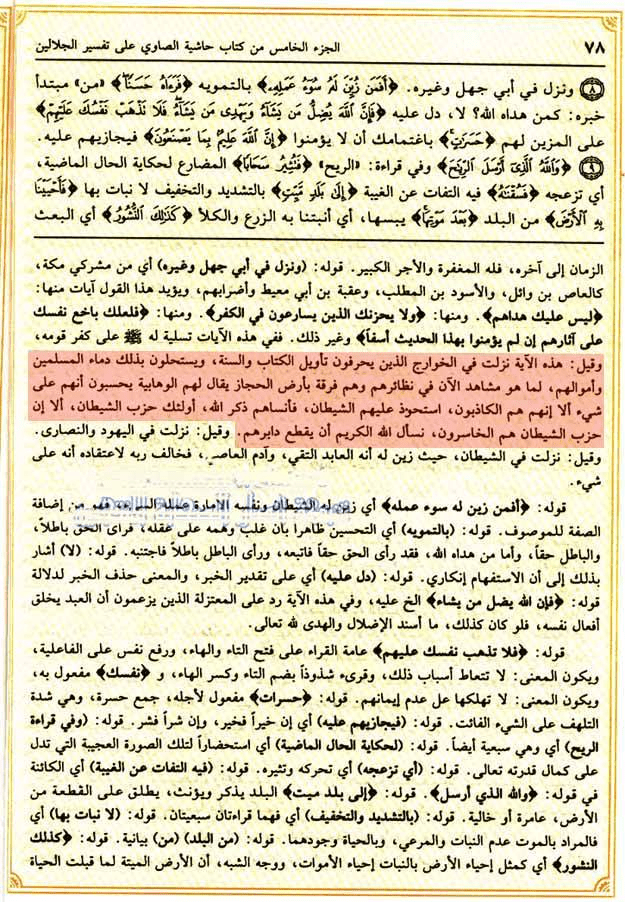 ٧٨ الجزء الخامس من كتاب حاشية الصاوي على تفسير الجلالين
٨ ونزل في أبي جهل وغيره. ﴿أَفَمَن زُيِّنَ لَهُ سُوءُ عَمَلِهِ﴾ بالتمويه ﴿فَرَءَاهُ حَسَنًا﴾ «من» مبتدأ
خبره: كمن هداه الله؟ لا، دل عليه ﴿فَإِنَّ اللَّهَ يُضِلُّ مَن يَشَاءُ وَيَهْدِى مَن يَشَاءُ فَلَا تَذْهَبْ نَفْسُكَ عَلَيْهِمْ﴾
على المزين لهم ﴿حَسَرَٰتٍ﴾ باغتمامك أن لا يؤمنوا ﴿إِنَّ اللَّهَ عَلِيمٌ بِمَا يَصْنَعُونَ﴾ فيجازيهم عليه.
٩ ﴿وَاللَّهُ الَّذِى أَرْسَلَ الرِّيَٰحَ﴾ وفي قراءة: «الريح» ﴿فَتُثِيرُ سَحَابًا﴾ المضارع لحكاية الحال الماضية،
أي تزعجه ﴿فَسُقْنَٰهُ﴾ فيه التفات عن الغيبة ﴿إِلَىٰ بَلَدٍ مَّيِّتٍ﴾ بالتشديد والتخفيف لا نبات بها ﴿فَأَحْيَيْنَا
بِهِ الْأَرْضَ﴾ من البلد ﴿بَعْدَ مَوْتِهَا﴾ يبسها، أي أنبتنا به الزرع والكلأ ﴿كَذَٰلِكَ النُّشُورُ﴾ أي البعث
الزمان إلى آخره، فله المغفرة والأجر الكبير. قوله: (ونزل في أبي جهل وغيره) أي من مشركي مكة،
كالعاص بن وائل، والأسود بن المطلب، وعقبة بن أبي معيط وأضرابهم، ويؤيد هذا القول آيات منها:
﴿ليس عليك هداهم﴾. ومنها: ﴿ولا يحزنك الذين يسارعون في الكفر﴾. ومنها: ﴿فلعلك باخع نفسك
على آثارهم إن لم يؤمنوا بهذا الحديث أسفاً﴾ وغير ذلك. ففي هذه الآيات تسلية له ﷺ على كفر قومه،
وقيل: هذه الآية نزلت في الخوارج الذين يحرفون تأويل الكتاب والسنة، ويستحلون بذلك دماء المسلمين
وأموالهم، لما هو مشاهد الآن في نظائرهم وهم فرقة بأرض الحجاز يقال لهم الوهابية يحسبون أنهم على
شيء ألا إنهم هم الكاذبون، استحوذ عليهم الشيطان، فأنساهم ذكر الله، أولئك حزب الشيطان، ألا إن
حزب الشيطان هم الخاسرون، نسأل الله الكريم أن يقطع دابرهم. وقيل: نزلت في اليهود والنصارى.
وقيل: نزلت في الشيطان، حيث زين له أنه العابد التقي، وآدم العاصي، فخالف ربه لاعتقاده أنه على
شيء.
قوله: ﴿أفمن زين له سوء عمله﴾ أي زين له الشيطان ونفسه الأمارة عمله السيىء، فهو من إضافة
الصفة للموصوف. قوله: (بالتمويه) أي التحسين ظاهرا بأن غلب وهمه على عقله، فرأى الحق باطلاً،
والباطل حقاً، وأما من هداه الله، فقد رأى الحق حقاً فاتبعه، ورأى الباطل باطلاً فاجتنبه. قوله: (لا) أشار
بذلك إلى أن الاستفهام إنكاري. قوله: (دل عليه) أي على تقدير الخبر، والمعنى حذف الخبر لدلالة
قوله: ﴿فإن الله يضل من يشاء﴾ الخ عليه، وفي هذه الآية رد على المعتزلة الذين يزعمون أن العبد يخلق
أفعال نفسه، فلو كان كذلك، ما أسند الإضلال والهدى لله تعالى.
قوله: ﴿فلا تذهب نفسك عليهم﴾ عامة القراء على فتح التاء والهاء، ورفع نفس على الفاعلية،
ويكون المعنى: لا تتعاط أسباب ذلك، وقرىء شذوذاً بضم التاء وكسر الهاء، و ﴿نفسك﴾ مفعول به،
ويكون المعنى: لا تهلكها عل عدم إيمانهم. قوله: ﴿حسرات﴾ مفعول لأجله، جمع حسرة، وهي شدة
التلهف على الشيء الفائت. قوله: (فيجازيهم عليه) أي إن خيراً فخير، وإن شراً فشر. قوله: (وفي قراءة
الريح) أي وهي سبعية أيضاً. قوله: (لحكاية الحال الماضية) أي استحضاراً لتلك الصورة العجيبة التي تدل
على كمال قدرته تعالى. قوله: (أي تزعجه) أي تحركه وتثيره. قوله: (فيه التفات عن الغيبة) أي الكائنة
في قوله: ﴿والله الذي أرسل﴾. قوله: ﴿إلى بلد ميت﴾ البلد يذكر ويؤنث، يطلق على القطعة من
الأرض، عامرة أو خالية. قوله: (بالتشديد والتخفيف) أي فهما قراءتان سبعيتان. قوله: (لا نبات بها) أي
فالمراد بالموت عدم النبات والمرعى، وبالحياة وجودهما. قوله: (من البلد) (من) بيانية. قوله: ﴿كذلك
النشور﴾ أي كمثل إحياء الأرض بالنبات إحياء الأموات، ووجه الشبه، أن الأرض الميتة لما قبلت الحياة